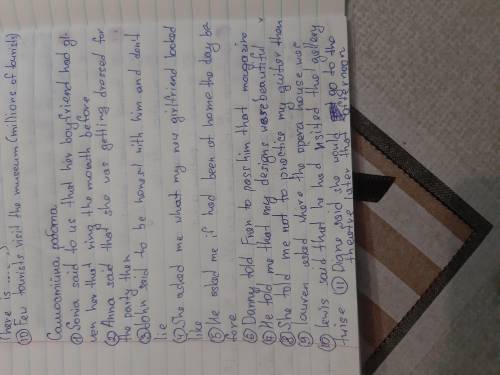 There is
⑩ Few tourists visit the museum (millions of tourists)
Самостійна робота.
① Sonia said to us that her boyfriend had gi-
ven her that ring the month before
② Anna said that she was getting dressed for
the party then
③ John said to be honest with him and don't
lie
④ She asked me what my new girlfriend looked
like
⑤ He asked me if had been at home the day be-
fore
⑥ Danny told Fran to pass him that magazine
⑦ He told me that my designs were beautiful
⑧ She told me not to practice my guitar then
⑨ Lauren asked where the opera house was
⑩ Lewis said that he had visited the gallery
twise ⑪ Diane said she would go to the
theatre later that afternoon